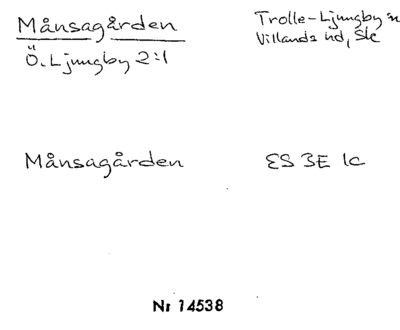 Månsagården
Trolle-Ljungby sn
Ö. Ljungby 2:1
Villands hd, Sk
Månsagården
ES 3E 1c
Nr 14538